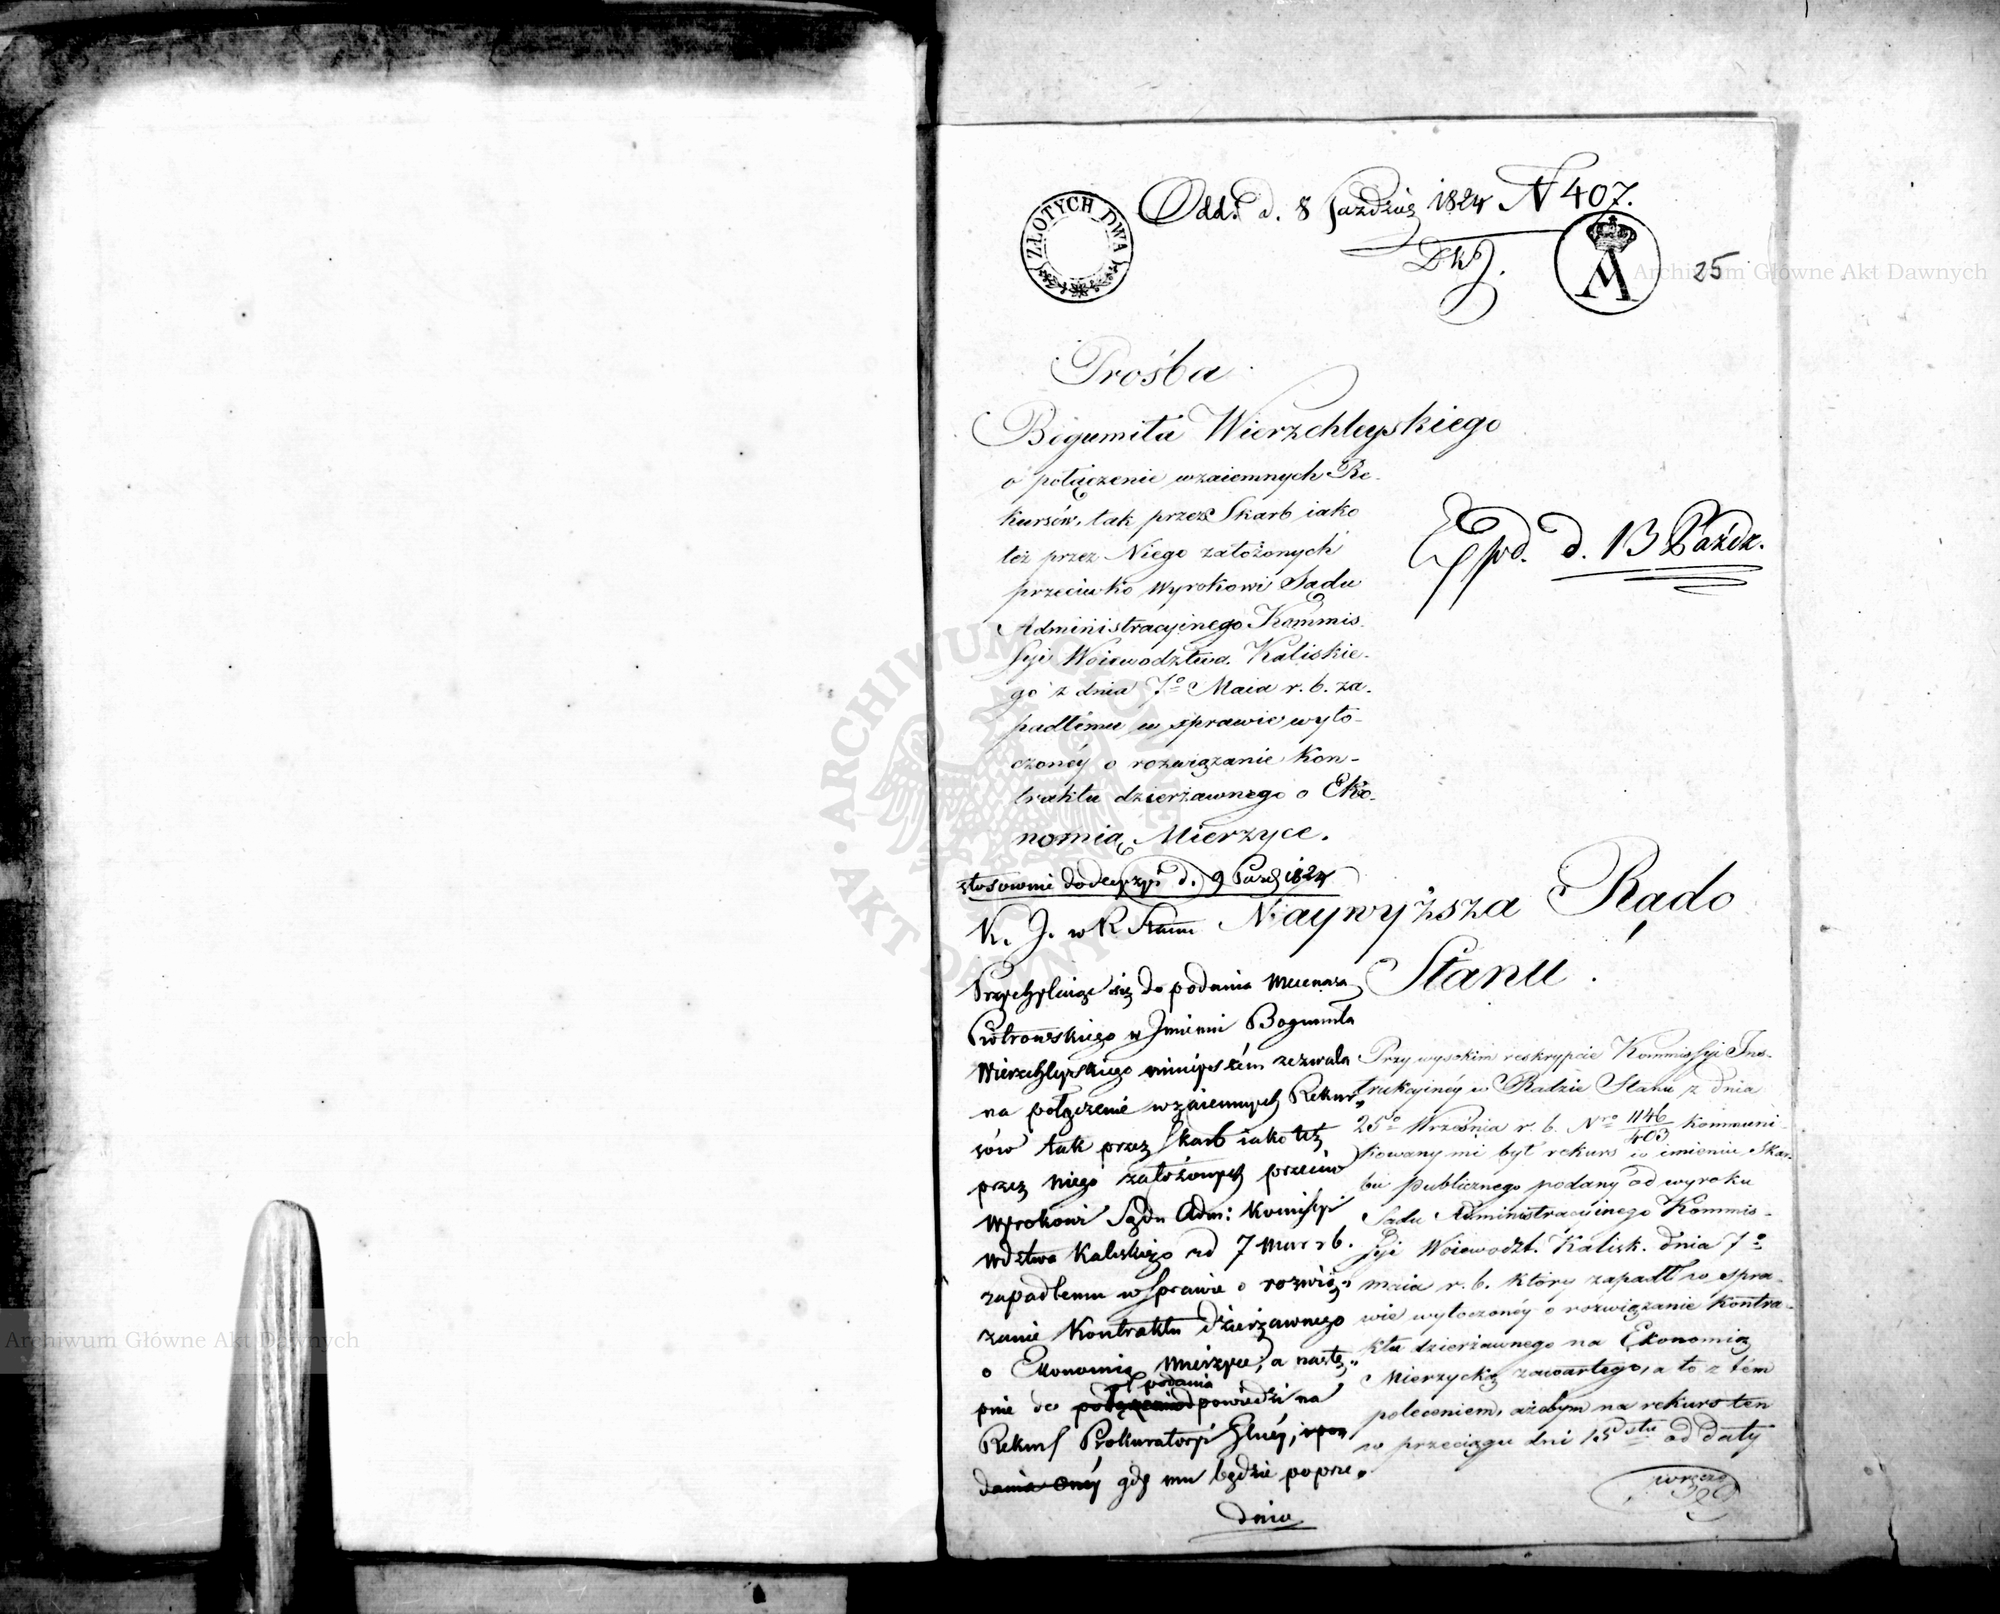 Odd: d. 8 Paździer 1824 N 407.
ZŁOTYCH DWA
A
25
Prośba
Bogumiła Wierzchleyskiego
o połączenie wzaiemnych Re-
kursów, tak przez Skarb iako
też przez Niego założonych
przeciwko Wyrokowi Sądu
Administracyinego Kommis-
syi Woiewodztwa Kaliskie-
go z dnia 7o Maia r. b. za-
padłému w sprawie wyto-
czonéy o rozwiązanie Kon-
traktu dzierżawnego o Eko-
nomią Mierzyce.
Exped. d. 13 Paźdz.
stosownie do decyzyi d. 9 Paźd 1824
K. J. w R. Stanu
Przychylaiąc się do podania Mecenasa
Piotrowskiego w Jmieniu Bogumiła
Wierzchleyskiego ninieyszém zezwala
na połączenie wzaiemnych Rekur-
sów tak przez Skarb iako też
przez niego założonych przeciw
Wyrokowi Sądu Adm: Kommissyi
Wdztwa Kaliskiego od 7 Maia r b.
zapadłemu w Sprawie o rozwią-
zanie Kontraktu dzierżawnego
o Ekonomią Mierzyce, a nastę-
podania
pnie do odpowiedzi na
Rekurs Prokuratoryi Głnéy,
dania onéy gdy mu będzie poprze-
dnio
Naywyższa Rado
Stanu!
Przy wysokim reskrypcie Kommissyi Ins-
trukcyinéy w Radzie Stanu z dnia
25o Września r. b. Nro 1146/403 kommuni-
kowany mi był rekurs w imieniu Skar-
bu publicznego podany od wyroku
Sądu Administracyinego Kommis-
syi Woiewodzt. Kalisk. dnia 7o
maia r. b. który zapadł w spra-
wie wytoczonéy o rozwiązanie Kontra-
ktu dzierżawnego na Ekonomią
Mierzycką zawartego, a to z tém
poleceniem, ażebym na rekurs ten
w przeciągu dni 15stu od daty
Archiwum Główne Akt Dawnych
Archiwum Główne Akt Dawnych
ARCHIWUM GŁÓWNE AKT DAWNYCH